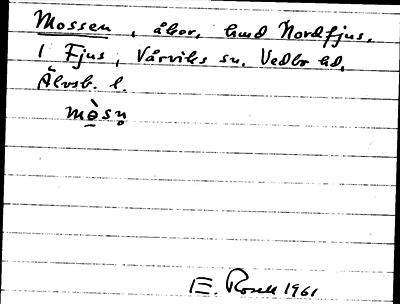 Mossen, åkor, hmd Nordfjus,
i Fjus, Vårviks sn. Vedbo hd,
Älvsb. l.
mò̱sn̥
E. Rosell 1961